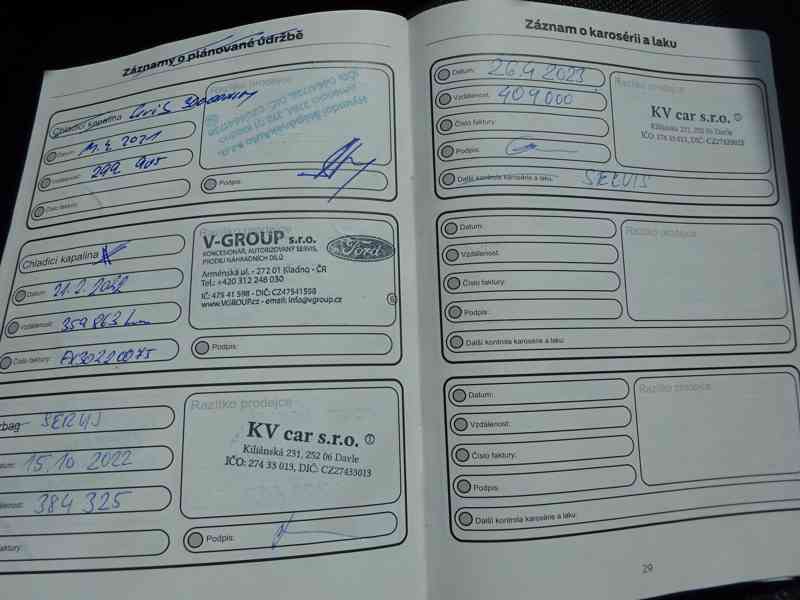 Záznamy o plánované údržbě
Chladící kapalina
Razítko prodejce
Datum: 11. 2. 2021
Vzdálenost: 299 905
Číslo faktury:
Podpis:
Chladící kapalina
Razítko prodejce
V-GROUP s.r.o.
KONCESIONÁŘ, AUTORIZOVANÝ SERVIS,
PRODEJ NÁHRADNÍCH DÍLŮ
Ford
Arménská ul. - 272 01 Kladno - ČR
Tel.: +420 312 246 030
IČ: 475 41 598 - DIČ: CZ47541598
www.VGROUP.cz - email: info@vgroup.cz
Datum: 21. 2. 2022
Vzdálenost: 359 863 km
Číslo faktury:
Podpis:
rbag SERVIS
Razítko prodejce
KV car s.r.o.
Kiliánská 231, 252 06 Davle
IČO: 274 33 013, DIČ: CZ27433013
atum: 15.10.2022
álenost: 384 325
faktury:
Podpis:
Záznam o karosérii a laku
Datum: 26.4.2023
Razítko prodejce
Vzdálenost: 409 000
KV car s.r.o.
Kiliánská 231, 252 06 Davle
IČO: 274 33 013, DIČ: CZ27433013
Číslo faktury:
Podpis:
Další kontrola karosérie a laku: SERVIS
Datum:
Razítko prodejce
Vzdálenost:
Číslo faktury:
Podpis:
Další kontrola karosérie a laku:
Datum:
Razítko prodejce
Vzdálenost:
Číslo faktury:
Podpis:
Další kontrola karosérie a laku:
29